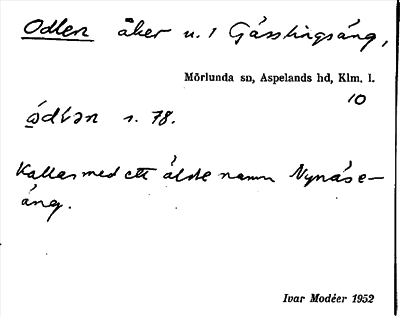 Odlen åker n. 1 Gässlingsäng,
Mörlunda sn, Aspelands hd, Klm. l.
10
s. 78.
Kallas med ett äldre namn Nynäse-
äng.
Ivar Modéer 1952